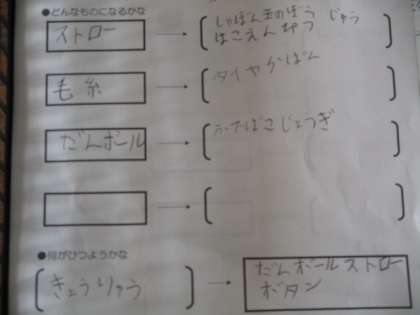 ●どんなものになるかな
ストロー
しゃぼん玉のぼう じゅう
はこえんぴつ
毛糸
タイヤかばん
だんボール
ふでばこじょうぎ
●何がひつようかな
きょうりゅう
だんボールストロー
ボタン